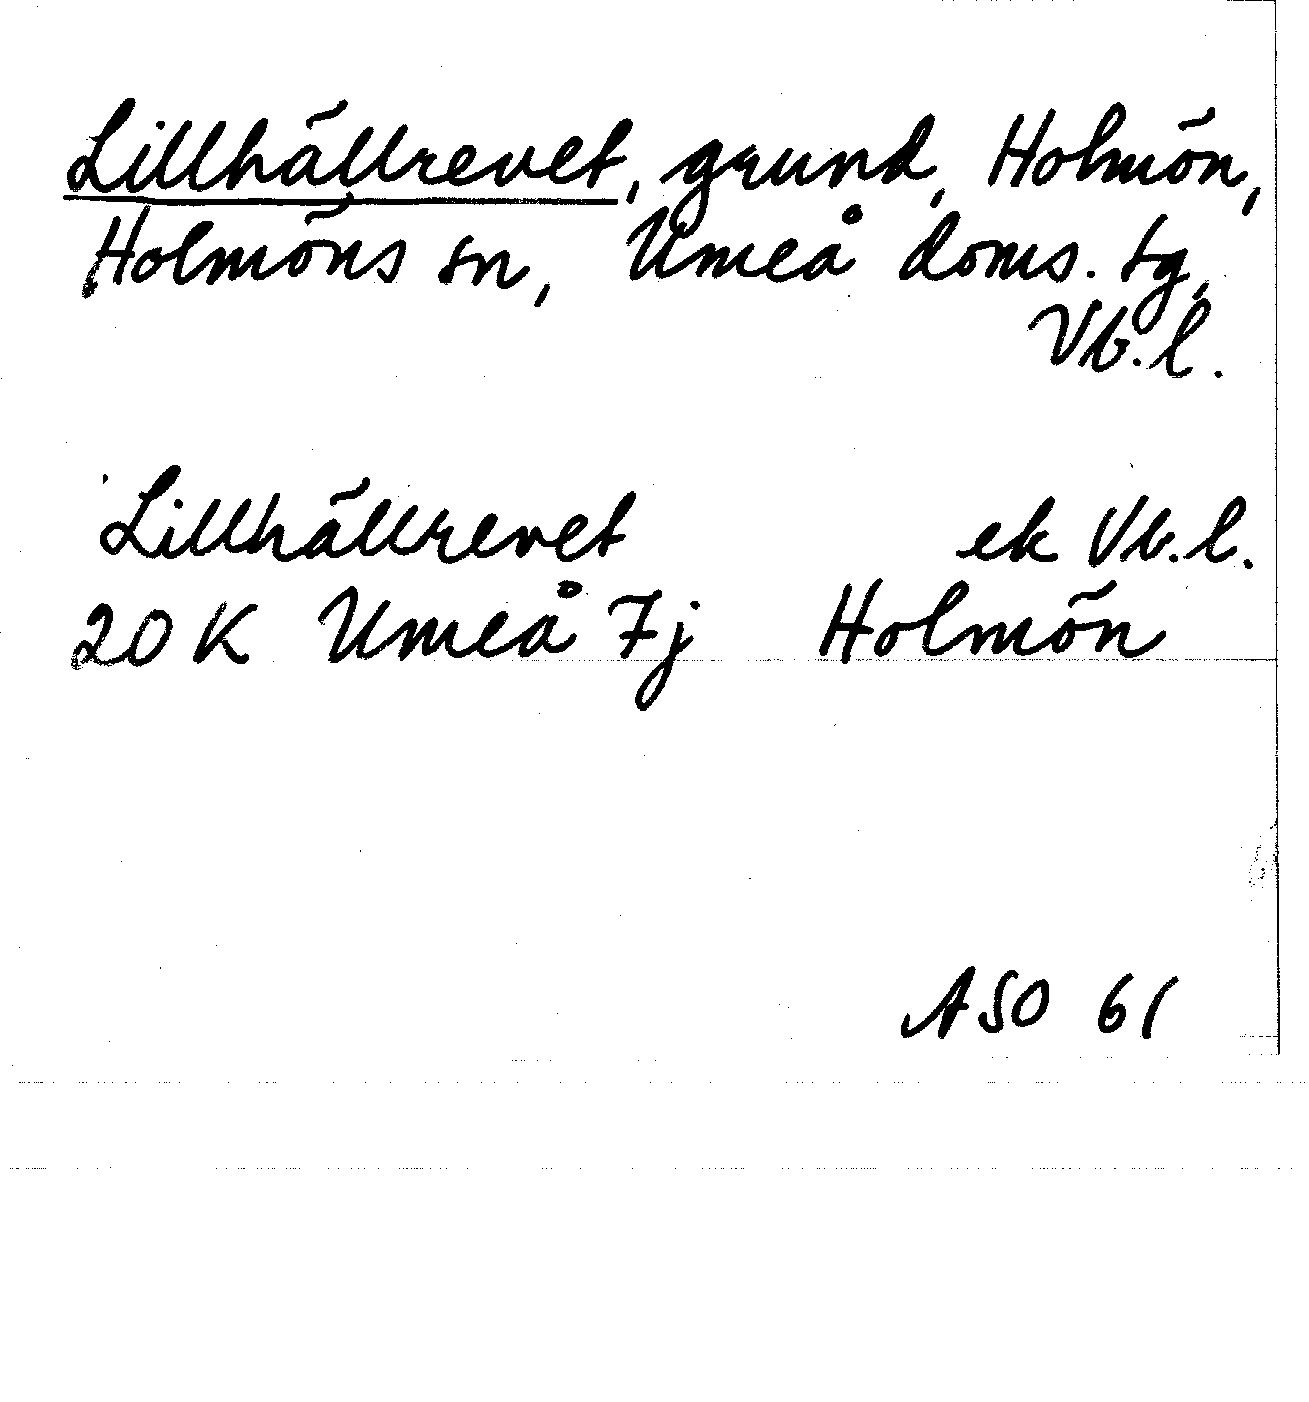 Lillhällrevet, grund, Holmön,
Holmöns sn, Umeå doms. tg,
Vb.l.
Lillhällrevet ek Vb.l.
20K Umeå 7j Holmön
ASO 61